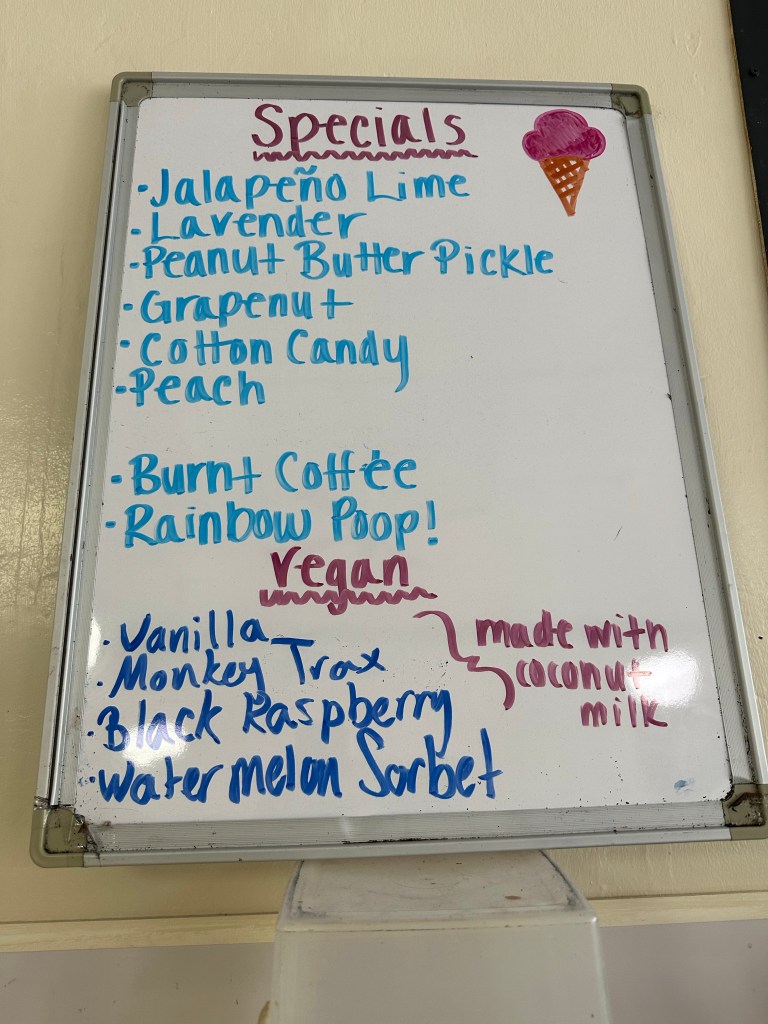 Specials
·Jalapeño Lime
·Lavender
·Peanut Butter Pickle
·Grapenut
·Cotton Candy
·Peach
·Burnt Coffee
·Rainbow Poop!
Vegan
·Vanilla
·Monkey Trax
·Black Raspberry
·Watermelon Sorbet
made with
coconut
milk